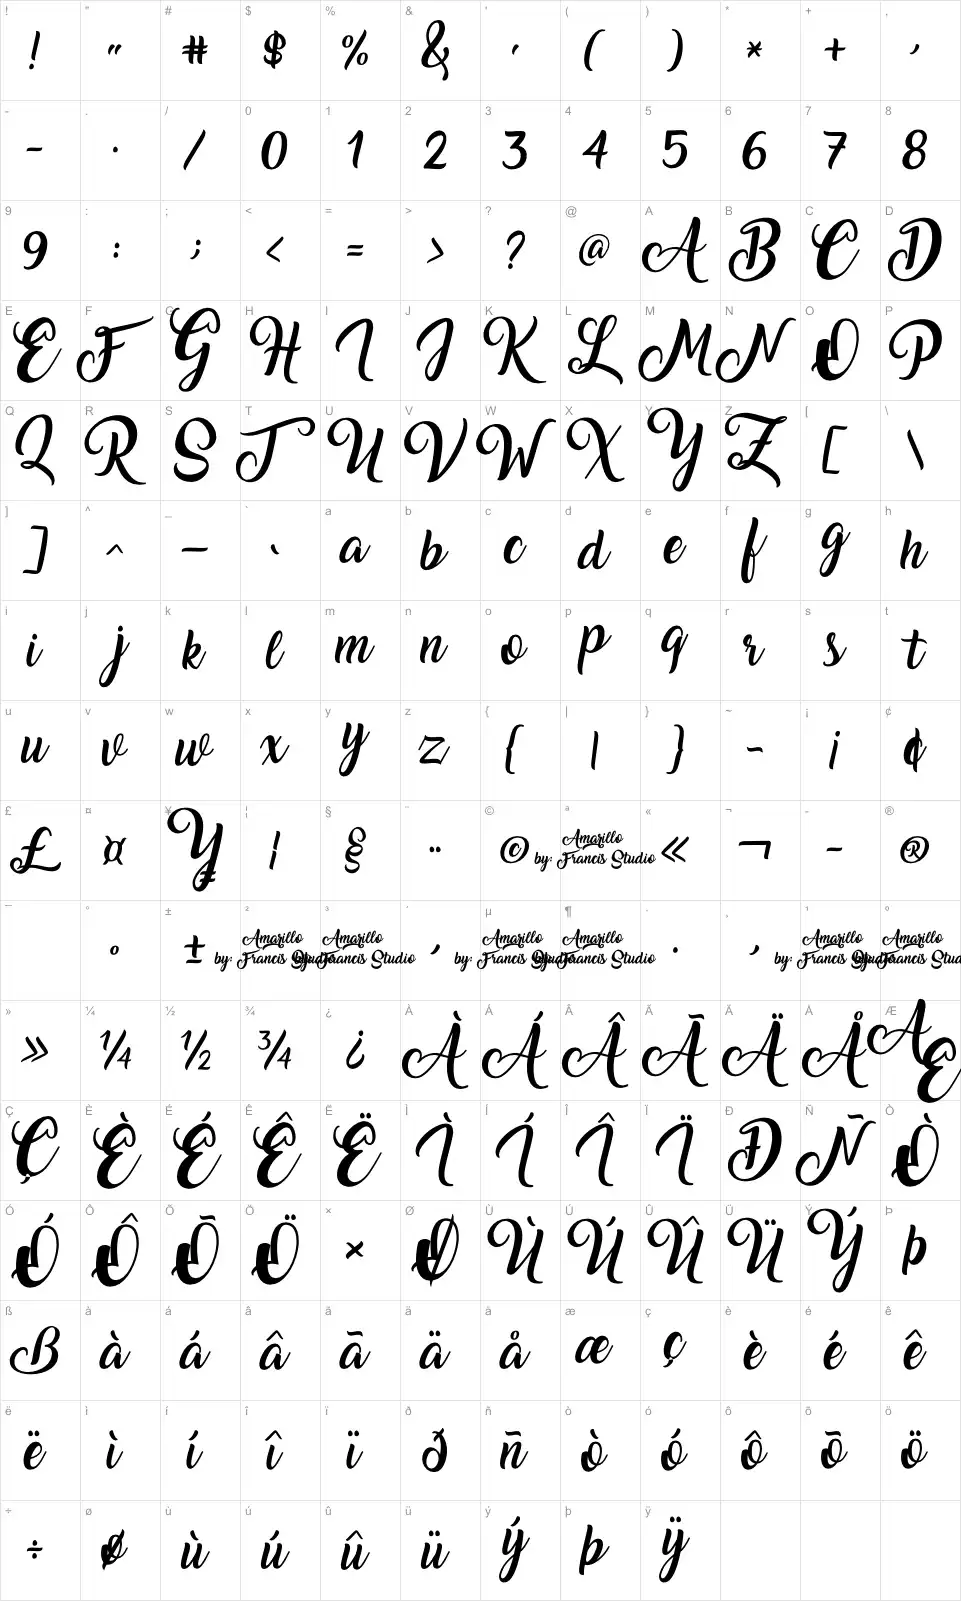 ! " # $ % & ' ( ) * + ,
! " # $ % & ' ( ) * + ,
- . / 0 1 2 3 4 5 6 7 8
- . / 0 1 2 3 4 5 6 7 8
9 : ; < = > ? @ A B C D
9 : ; < = > ? @ A B C D
E F G H I J K L M N O P
E F G H I J K L M N O P
Q R S T U V W X Y Z [ \
Q R S T U V W X Y Z [ \
] ^ _ ` a b c d e f g h
] ^ _ ` a b c d e f g h
i j k l m n o p q r s t
i j k l m n o p q r s t
u v w x y z { | } ~ ¡ ¢
u v w x y z { | } ~ ¡ ¢
£ ¤ ¥ ¦ § ¨ © ª « ¬ - ®
£ ¤ ¥ ¦ § ¨ © Amarillo by: Francis Studio « ¬ - ®
¯ ° ± ² ³ ´ µ ¶ · ¸ ¹ º
° ± Amarillo by: Francis Studio Amarillo by: Francis Studio ´ Amarillo by: Francis Studio Amarillo by: Francis Studio · ¸ Amarillo by: Francis Studio Amarillo by: Francis Stud
» ¼ ½ ¾ ¿ À Á Â Ã Ä Å Æ
» ¼ ½ ¾ ¿ À Á Â Ã Ä Å Æ
Ç È É Ê Ë Ì Í Î Ï Ð Ñ Ò
Ç È É Ê Ë Ì Í Î Ï Ð Ñ Ò
Ó Ô Õ Ö × Ø Ù Ú Û Ü Ý Þ
Ó Ô Õ Ö × Ø Ù Ú Û Ü Ý Þ
ß à á â ã ä å æ ç è é ê
ß à á â ã ä å æ ç è é ê
ë ì í î ï ð ñ ò ó ô õ ö
ë ì í î ï ð ñ ò ó ô õ ö
÷ ø ù ú û ü ý þ ÿ
÷ ø ù ú û ü ý þ ÿ